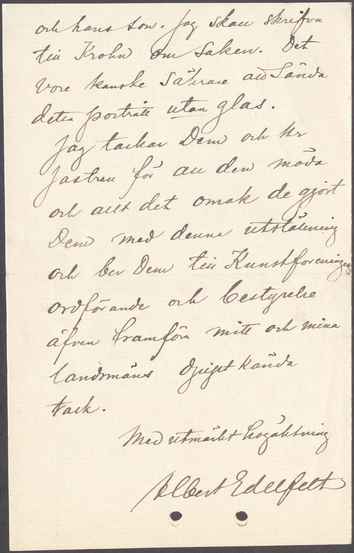 och hans son. Jag skall skrifva
till Krohn om saken. Det
vore kanske säkrare att sända
detta porträtt utan glas.
Jag tackar Dem och Hr
Jastrau för all den möda
och allt det omak de gjort
Dem med denna utställning
och ber Dem till Kunstforeningens
ordförande och bestyrelse
äfven framföra mitt och mina
landsmäns djupt kända
tack.
Med utmärkt högaktning
Albert Edelfelt